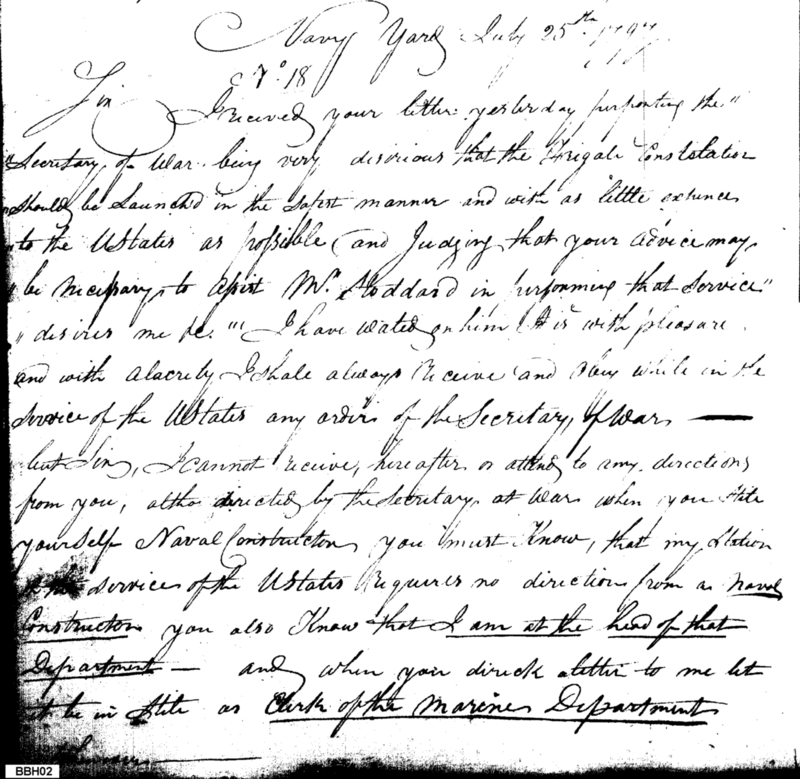 Navy Yard July 25th 1797
No 18
Sir I received your letter yesterday purporting the "
" Secretary of War being very desirious that the Frigate Constolation
" should be Launch'd in the safest manner and with as little expence
" to the UStates as possible (and Judging that your advice may
" be necessary to assist Mr Stoddard in performing that Service "
" desires me &c. "' I have wated on him It is with pleasure
and with alacrety I shale always receive and obey while in the
Service of the UStates any orders of the Secretary of War —
but Sir, I cannot receive, hereafter or attend to any directions
from you, altho directed by the Secretary at War when you stile
yourself Naval Constructor, you must Know, that my Station
in the services of the UStates Requires no direction from a Naval
Constructor you also Know that I am at the head of that
Department — and when you direck a letter to me let
it be in Stile as Clerk of the Marine Department
BBH02